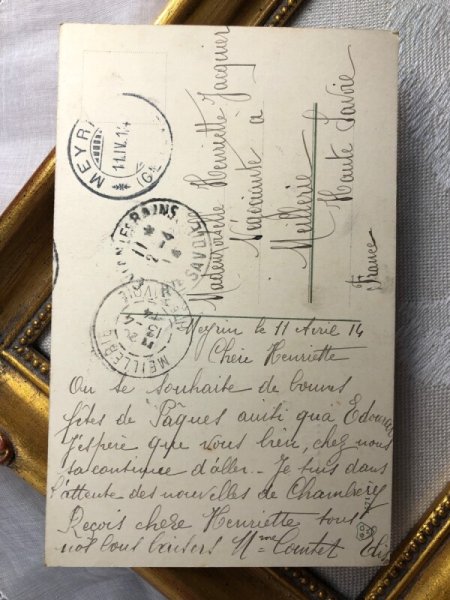 MEYRIN
11.IV.14
(G
BAINS
11 -4
SAVOIE
MEILLERIE
13-4
14
SAVOIE
Mademoiselle Henriette Jacquier
Négociante à
Meillerie
Haute Savoie
France
Meyrin le 11 Avril 14
Chère Henriette
On te souhaite de bonnes
fêtes de Pâques ainsi qu'à Edouard
J'espère que vous bien, chez nous
sa continue d'aller. Je suis dans
l'attente des nouvelles de Chambéry
Reçois chère Henriette tous
nos bons baisers Mme